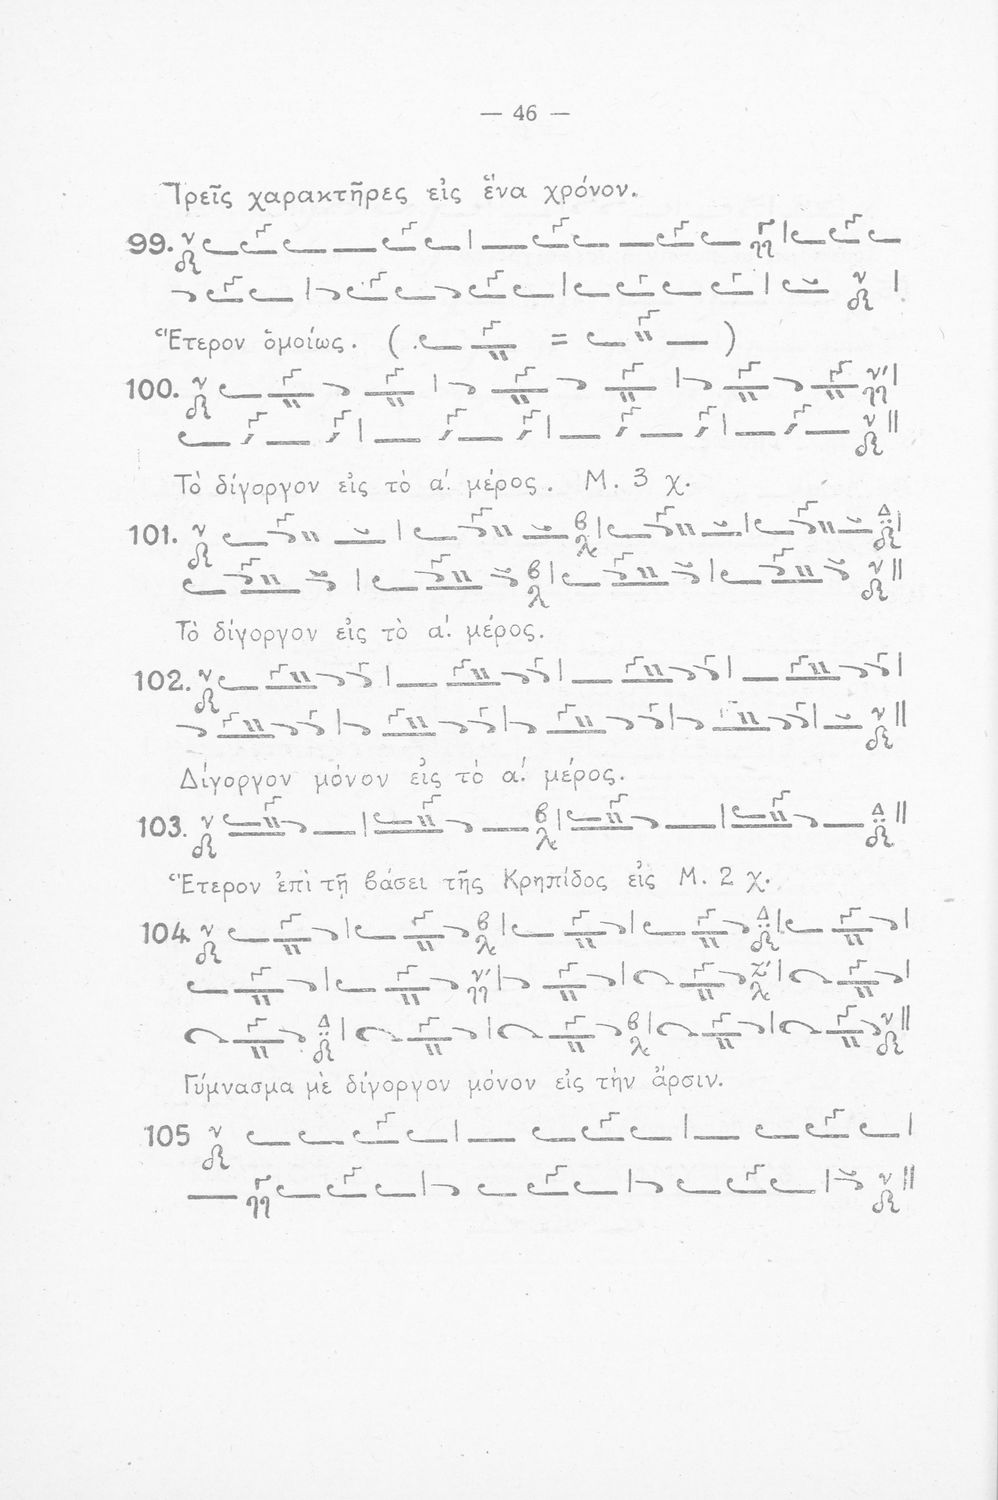 — 46 —
Τρεῖς χαρακτῆρες εἰς ἕνα χρόνον.
99.
Ἕτερον ὁμοίως. ( = )
100.
Τὸ δίγοργον εἰς τὸ α΄. μέρος. Μ. 3 χ.
101.
Τὸ δίγοργον εἰς τὸ α΄. μέρος.
102.
Δίγοργον μόνον εἰς τὸ α΄. μέρος.
103.
Ἕτερον ἐπὶ τῇ βάσει τῆς Κρηπίδος εἰς Μ. 2 χ.
104.
Γύμνασμα μὲ δίγοργον μόνον εἰς τὴν ἄρσιν.
105